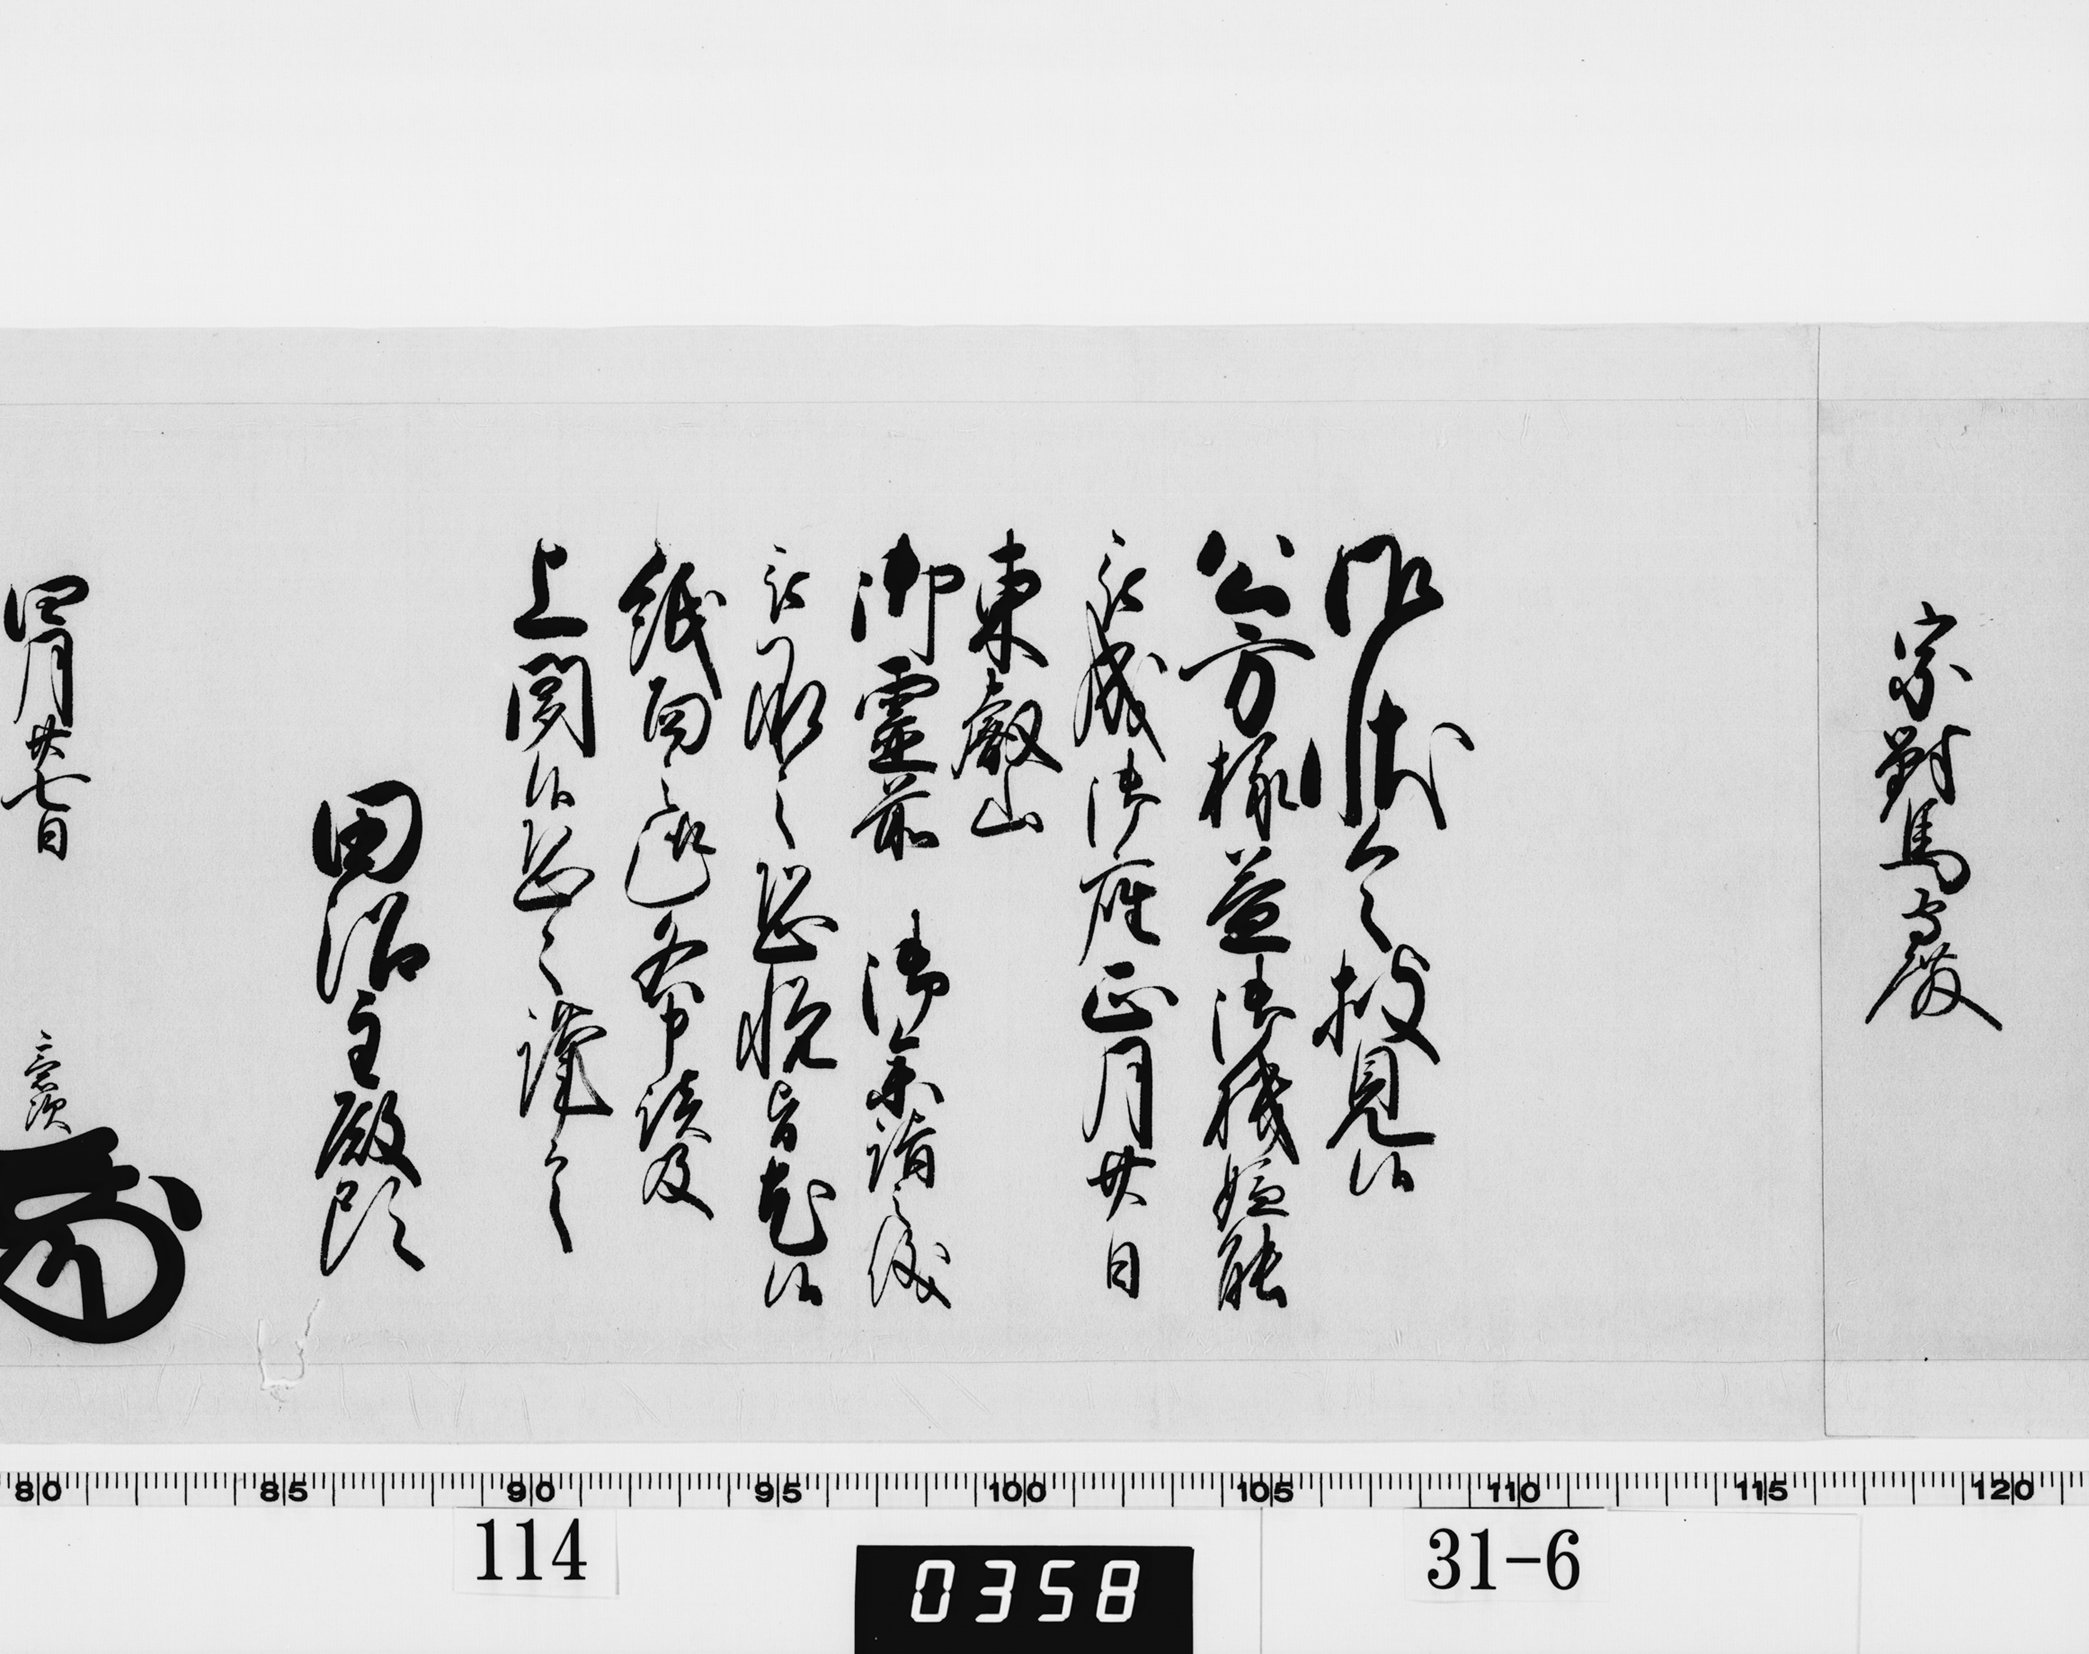 宗對馬守殿
御状令披見候
公方様益御機嫌能
被成御座正月廿日
東叡山
御靈前 御参詣之段
被承之恐悦旨尤候
紙面之趣各申談及
上聞候恐々謹言
田沼主殿頭
四月廿七日
意次
80 85 90 95 100 105 110 115 120
114
0358
31-6